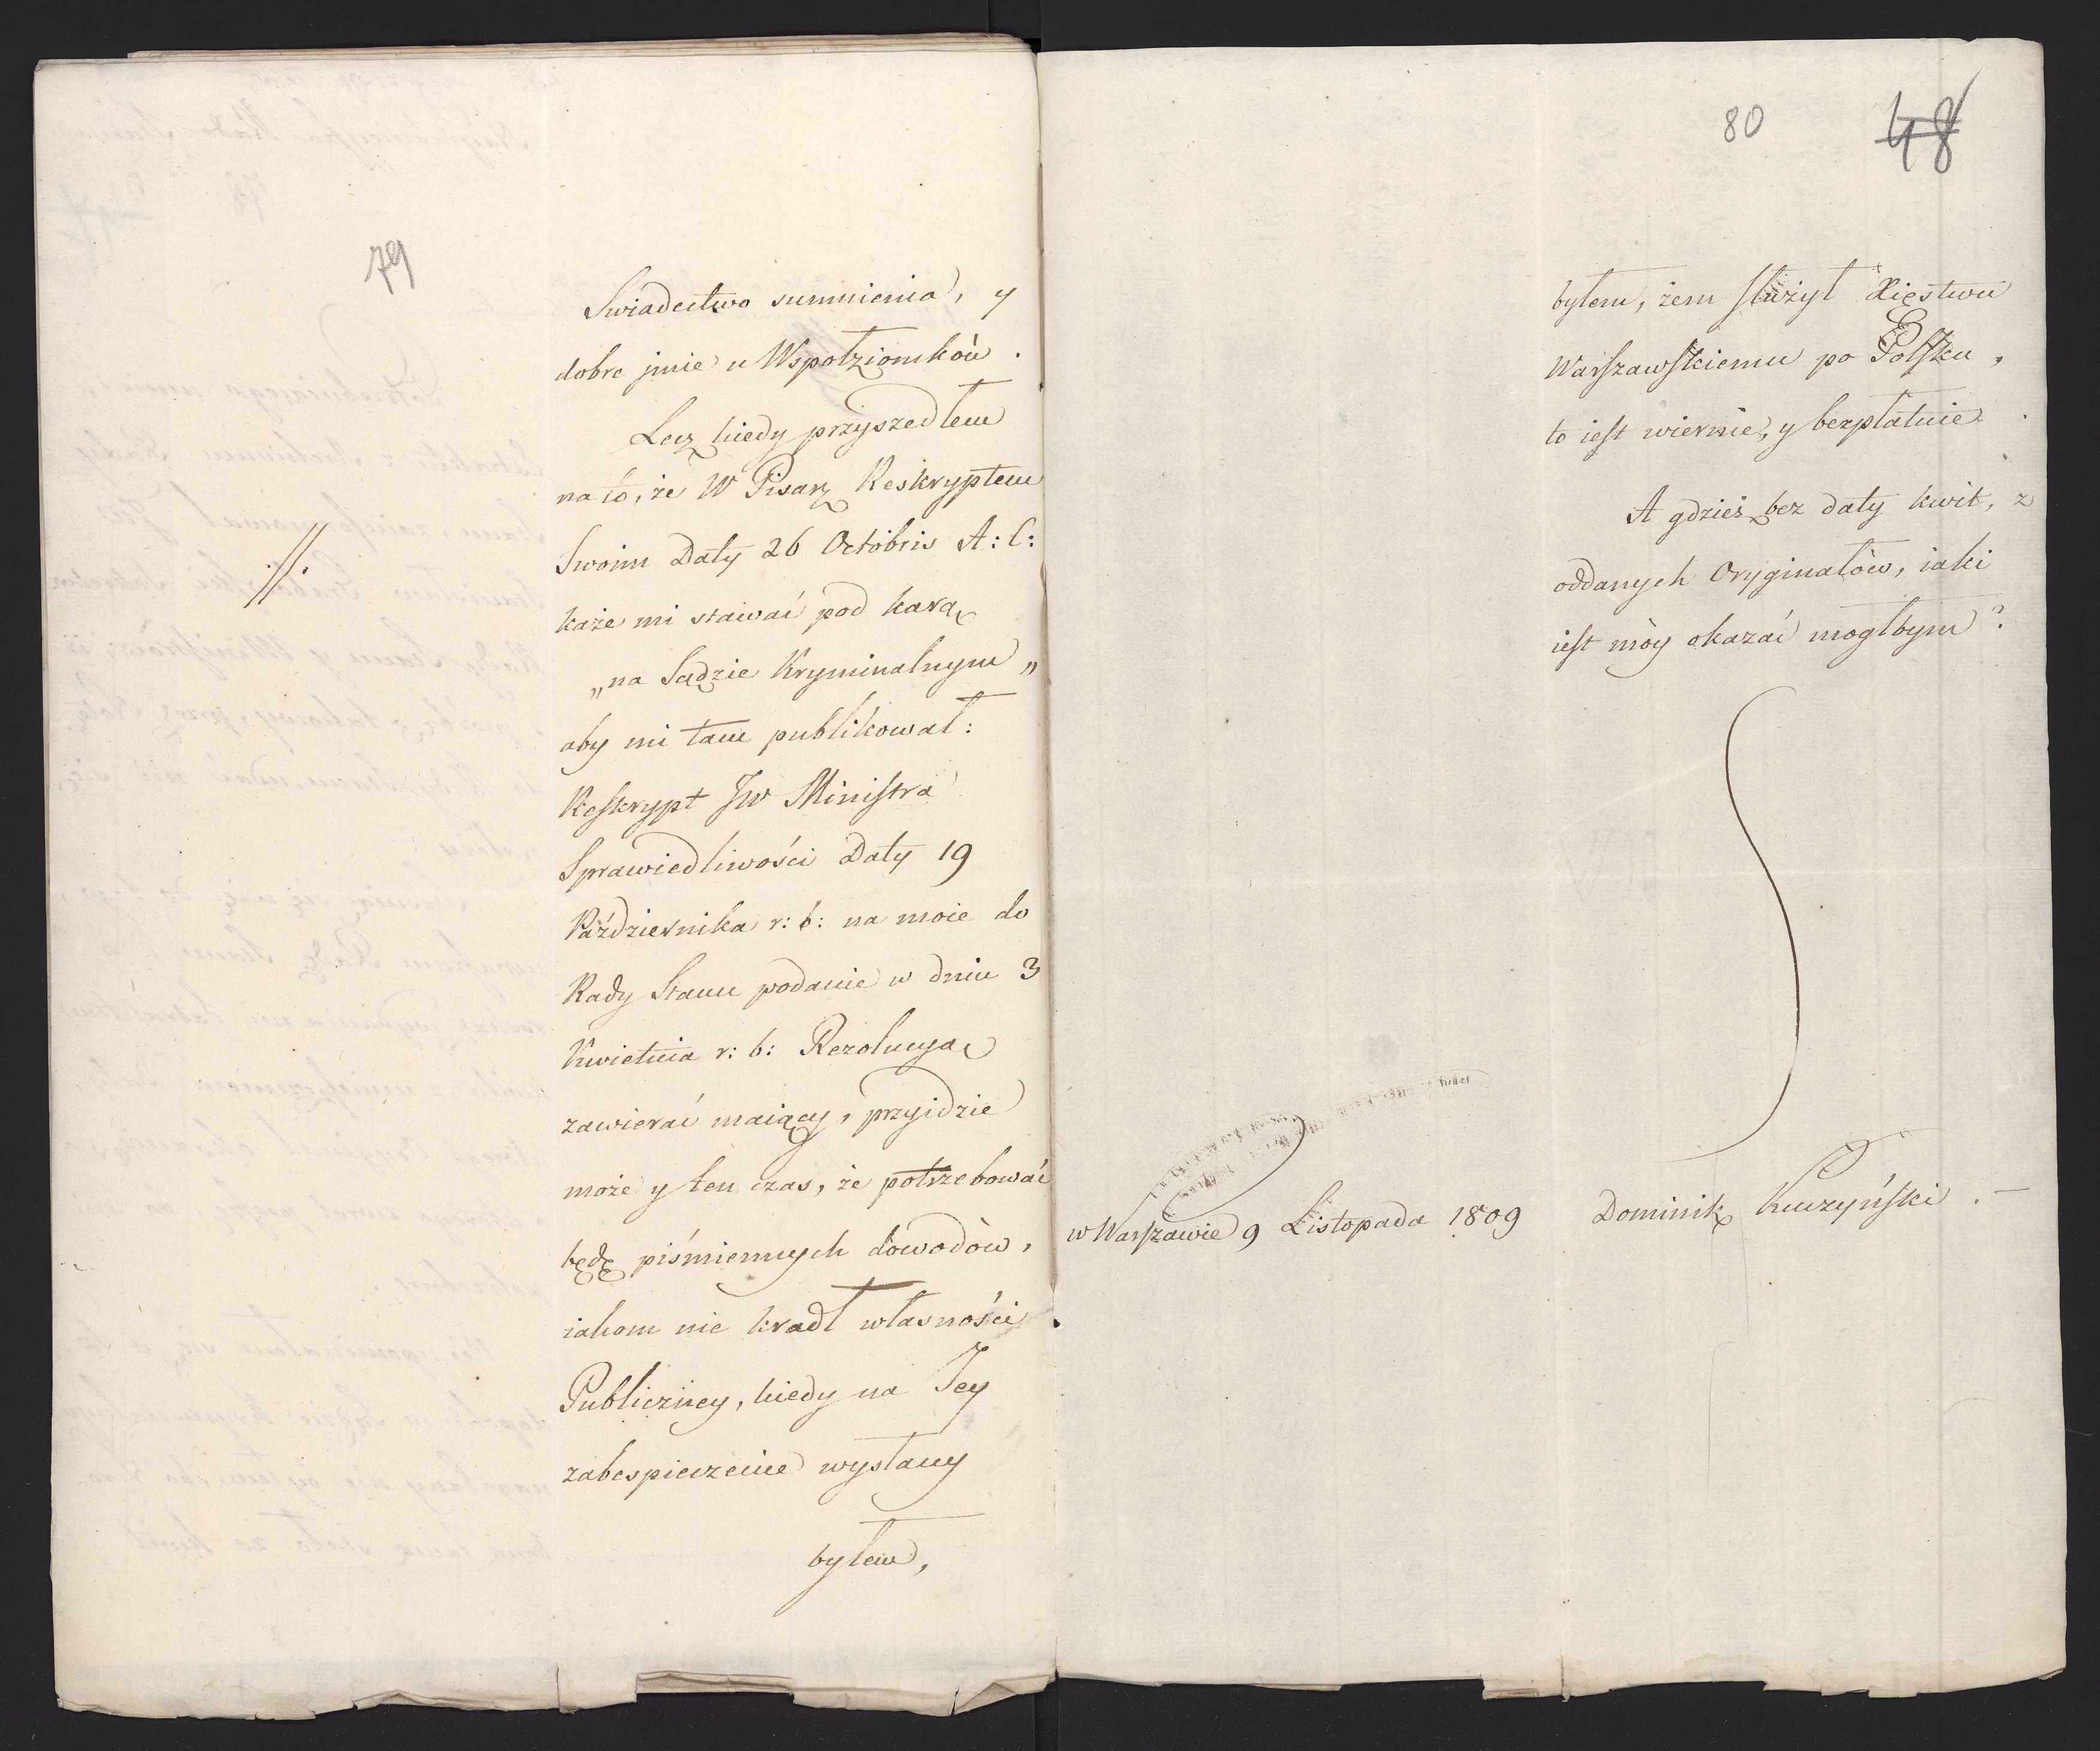 79
Swiadectwo sumnienia, y
dobre jmie u Wspołziomków.
Lecz kiedy przyszedłem
na to, że W Pisarz Reskryptem
Swoim Daty 26 Octobris A: C:
każe mi stawać pod karą
„na Sądzie Kryminalnym„
aby mi tam publikował:
Reskrypt JW Ministra
Sprawiedliwości Daty 19
Października r: b: na moie do
Rady Stanu podanie w dniu 3
Kwietnia r: b: Rezolucyą
zawierać maiący, przyidzie
może y ten czas, że potrzebować
będę piśmiennych dowodów,
iakom nie kradł własności
Publiczney, kiedy na Jey
zabespieczenie wysłany
byłem,
80 48
byłem, żem służył Xięstwu
Warszawskiemu po Polsku,
to iest wiernie, y bezpłatnie.
A gdzieś bez daty kwit, z
oddanych Oryginałów, iaki
iest móy okazać mogłbym?
w Warszawie 9 Listopada 1809 Dominik Kuczyński.